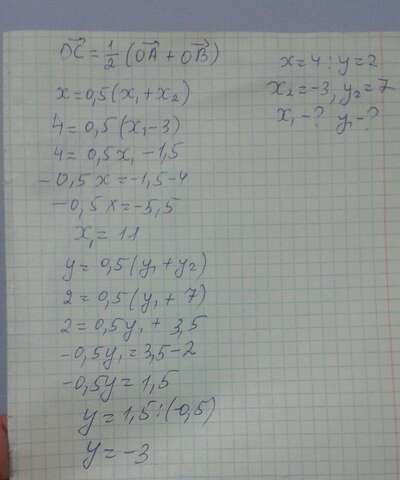 OC = 1/2 (OA + OB)
x = 0,5 (x₁ + x₂)
4 = 0,5 (x₁ - 3)
4 = 0,5x₁ - 1,5
-0,5x = -1,5-4
-0,5x = -5,5
x₁ = 11
y = 0,5 (y₁ + y₂)
2 = 0,5 (y₁ + 7)
2 = 0,5y₁ + 3,5
-0,5y₁ = 3,5 - 2
-0,5y = 1,5
y = 1,5 : (-0,5)
y = -3
x = 4 ; y = 2
x₂ = -3, y₂ = 7
x₁ - ? y₁ - ?